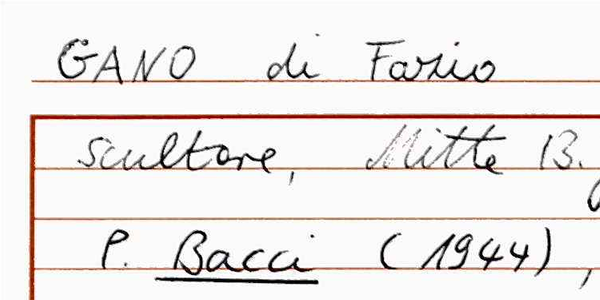 GANO di Fazio
scultore, Mitte 13.
P. Bacci (1944),